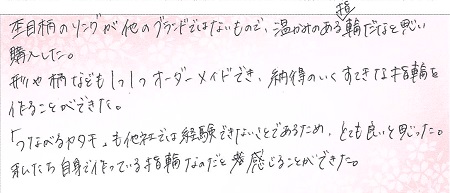 杢目柄のリングが他のブランドではないもので、温かみのある指輪だなと思い
購入した。
形や柄なども1つ1つオーダーメイドでき、納得のいくすてきな指輪を
作ることができた。
「つながるカタチ」も他社では経験できないことであるため、とても良いと思った。
私たち自身で作っている指輪なのだと感じることができた。